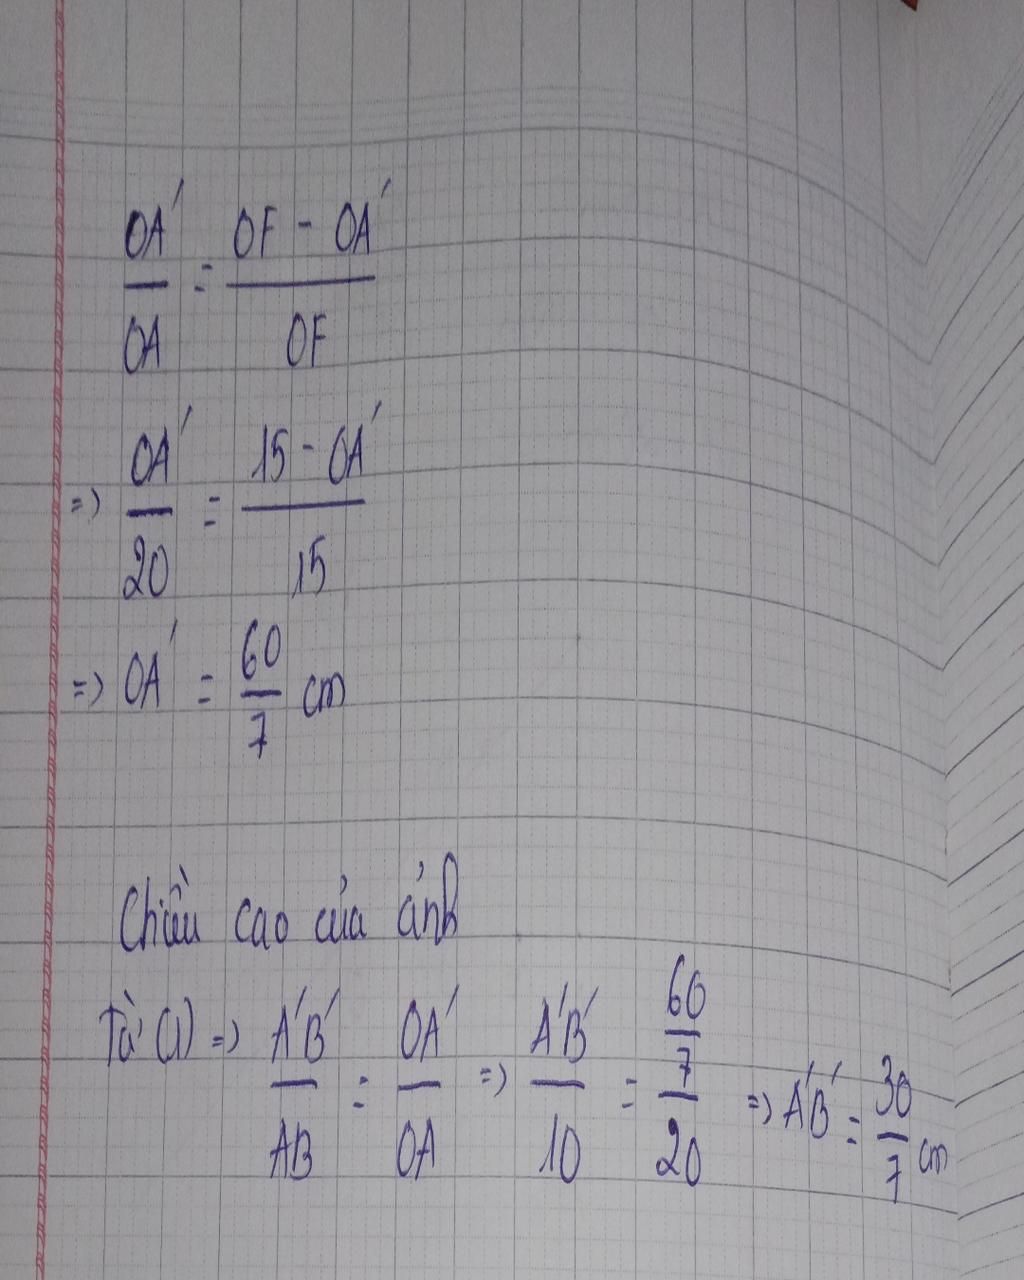 OA'/OA = (OF - OA')/OF
=> OA'/20 = (15 - OA')/15
=> OA' = 60/7 cm
Chiều cao của ảnh
Từ (1) => A'B'/AB = OA'/OA => A'B'/10 = (60/7)/20 => A'B' = 30/7 cm